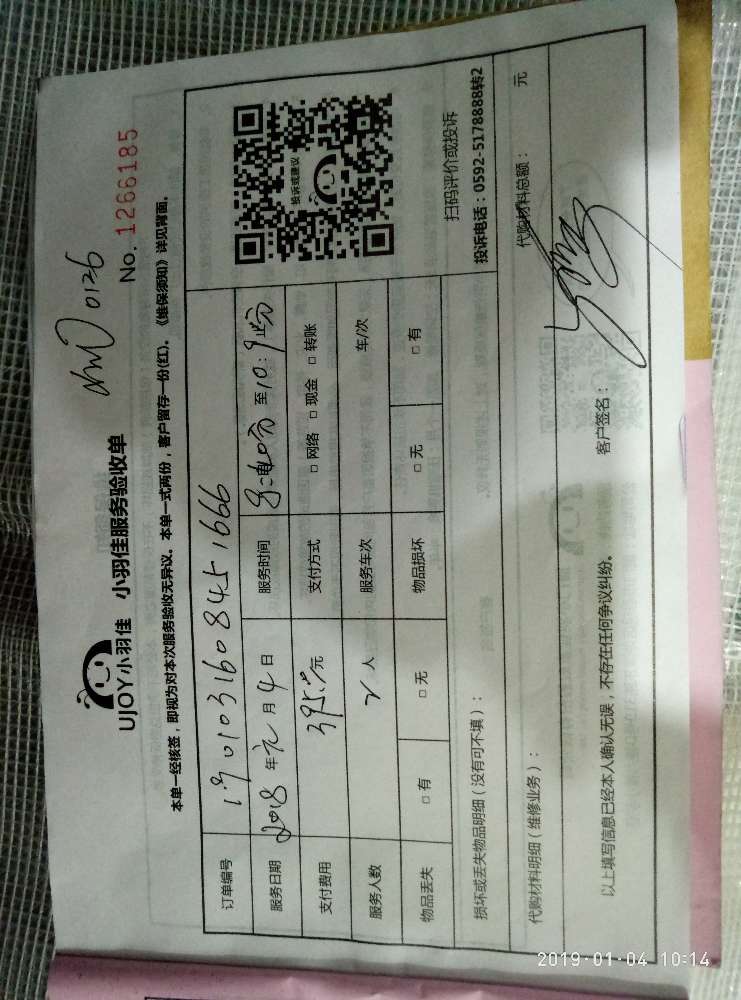 0126
No. 1266185
UJOY小羽佳 小羽佳服务验收单
本单一经核签，即视为对本次服务验收无异议。本单一式两份，客户留存一份(红)。《维保须知》详见背面。
订单编号 1901031608451666
服务日期 2018 年 元 月 4 日 服务时间 至10:
支付费用 395.00元 支付方式 □ 网络 □ 现金 □ 转账
服务人数 2 人 服务车次 车/次
物品丢失 □ 有 □ 无 物品损坏 □ 无 □ 有
投诉或建议
扫码评价或投诉
投诉电话：0592-5178888转2
损坏或丢失物品明细（没有可不填）：
代购材料明细（维修业务）： 代购材料总额： 元
以上填写信息已经本人确认无误，不存在任何争议纠纷。 客户签名：
2019-01-04 10:14